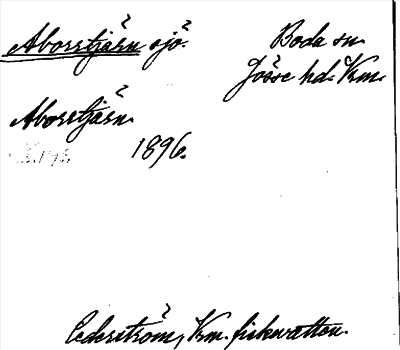 Aborrtjärn sjö.
Boda sn.
Jösse hd. Vrm.
Aborrtjärn.
1896.
Cederström, Vrm. fiskevatten.